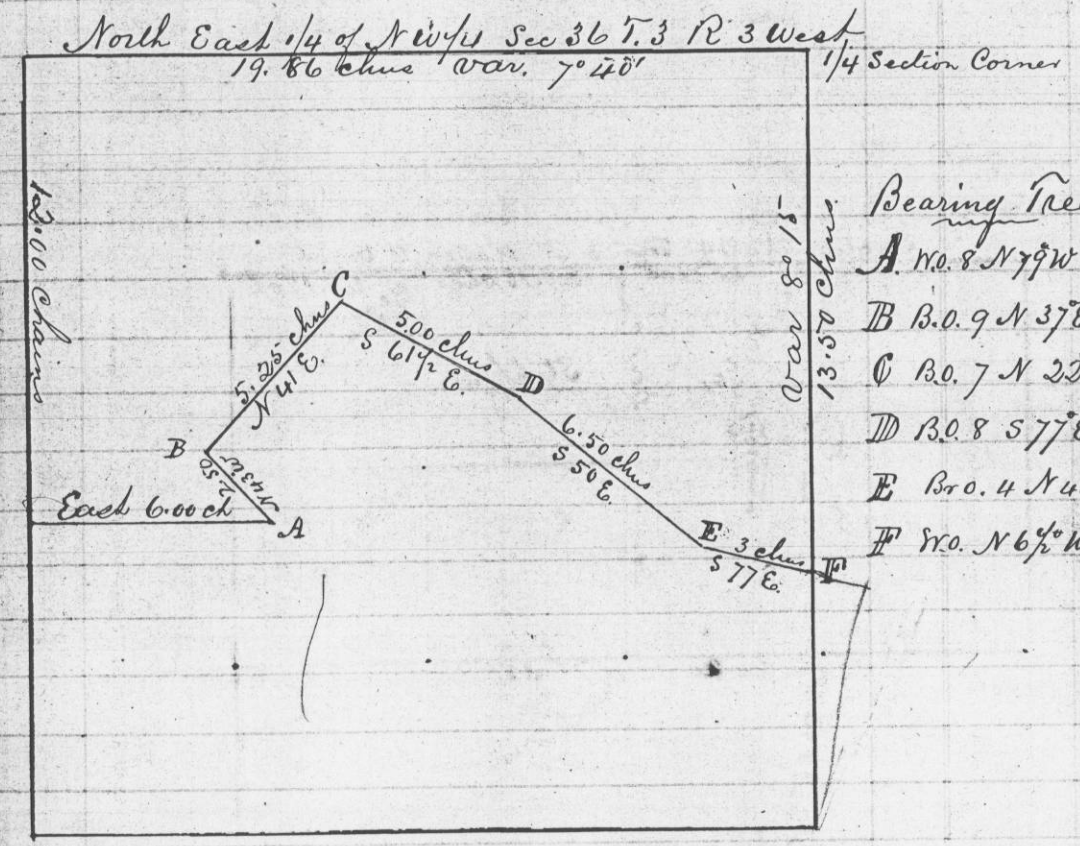 North East 1/4 of NW1/4 Sec 36 T.3 R 3 West
19.86 chns var. 7° 40'
1/4 Section Corner
12.00 Chains
var 8° 15
13.50 Chns
C
5.25 chns
N 41 E.
5.00 chns
S 61 1/2 E.
D
B
2.50
N 43 W
6.50 chns
S 50 E.
East 6.00 ch
A
E
3 chns
S 77 E.
F
Bearing Tre
A. W.O. 8 N 79° W
B B.O. 9 N 37° E
C B.O. 7 N 22
D B.O. 8 S 77° E
E Br O. 4 N 4
F W.O. N 6 1/2° W